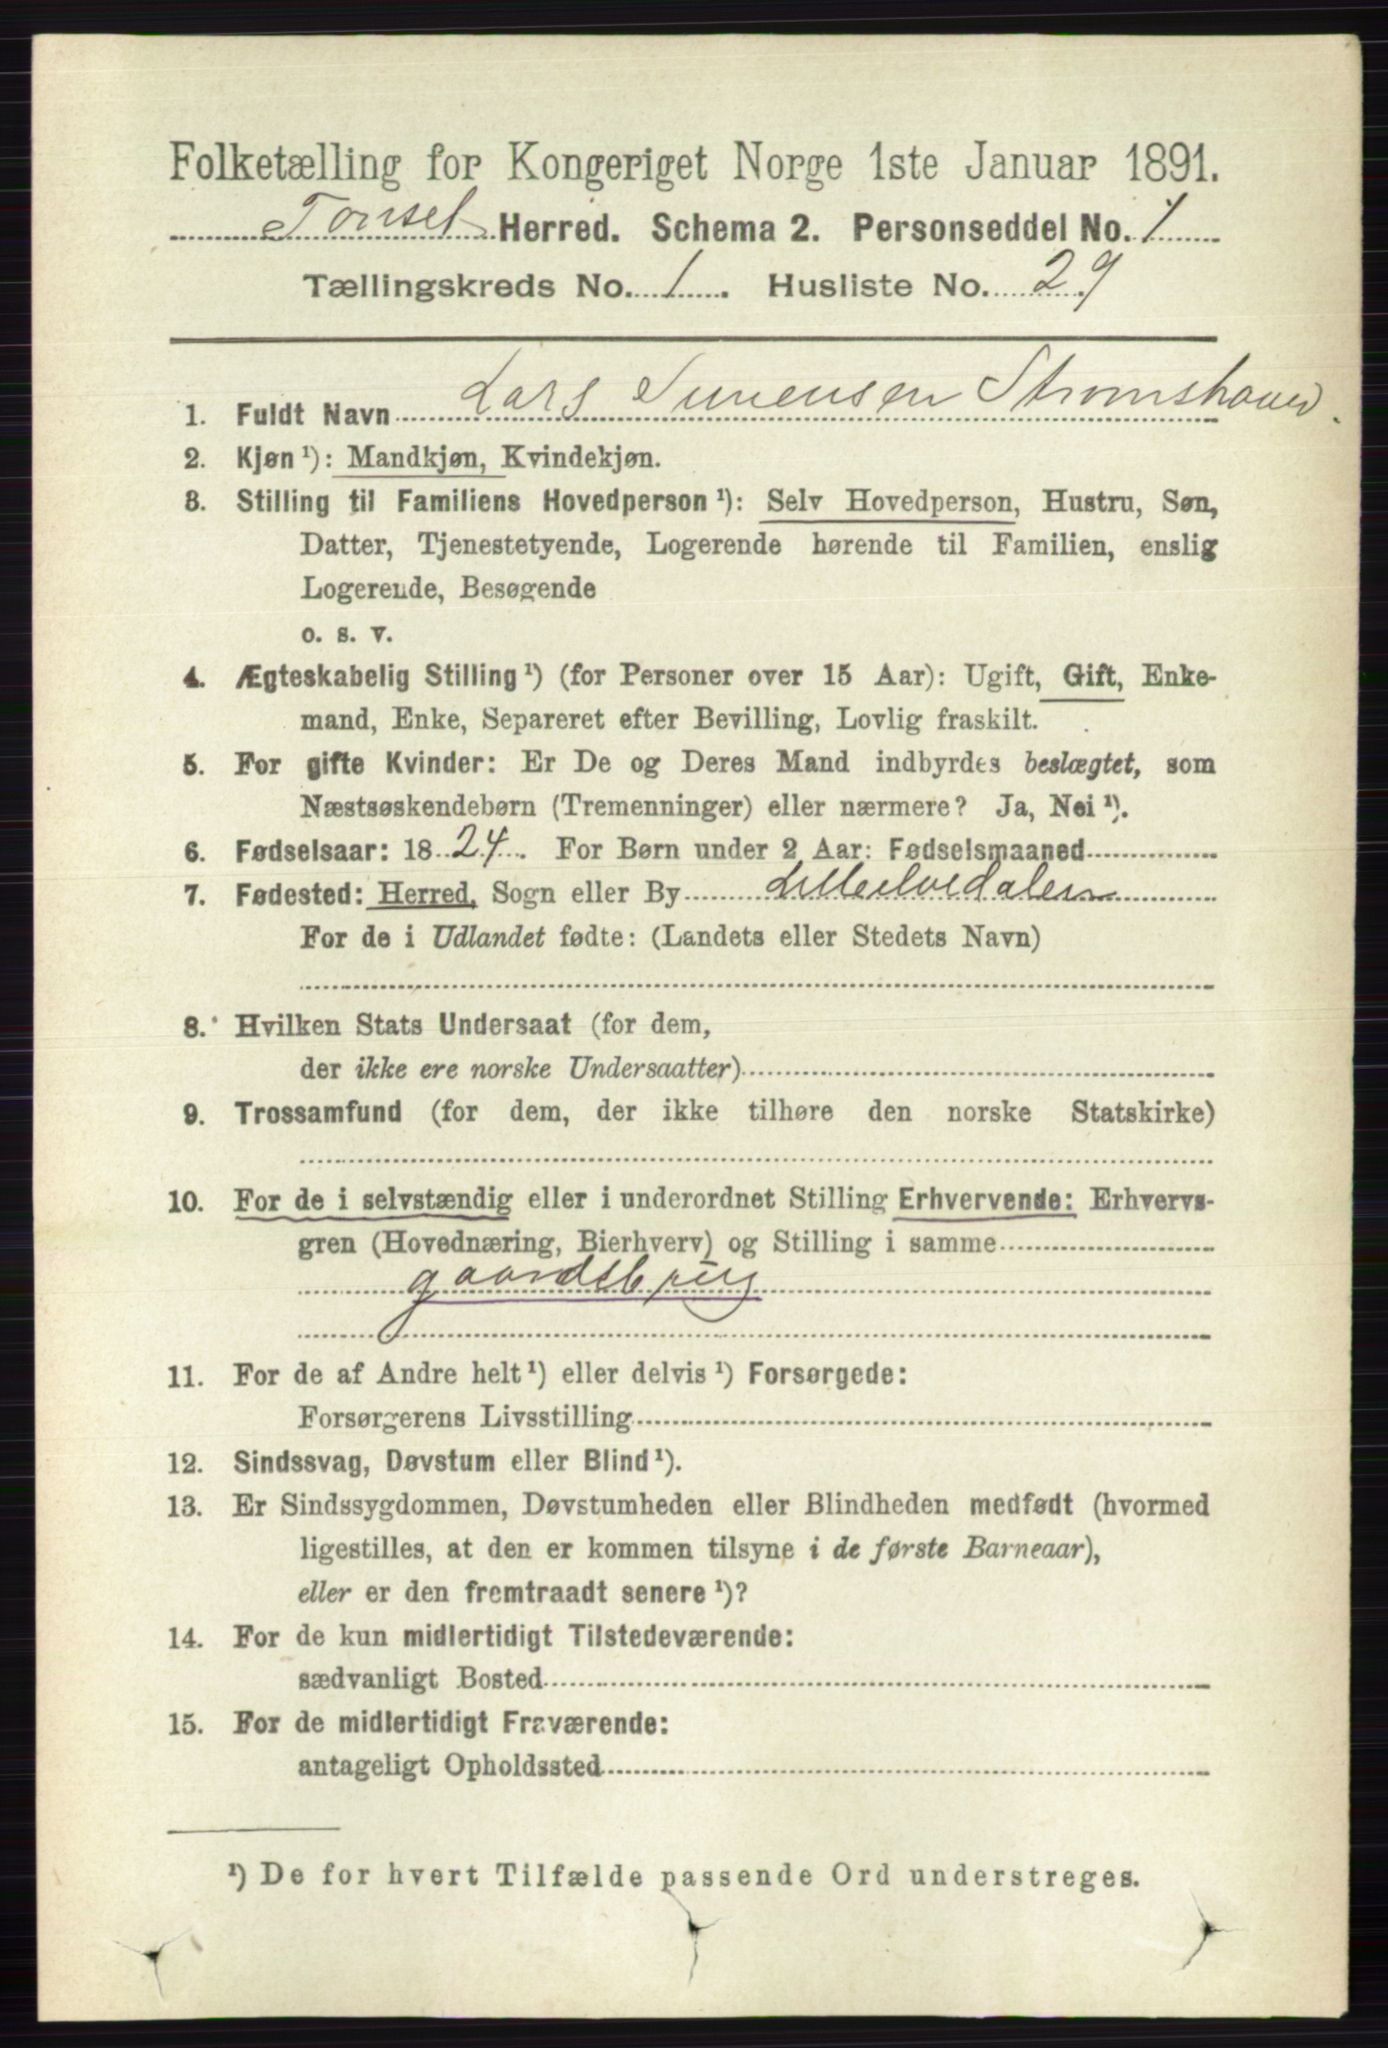 Folketælling for Kongeriget Norge 1ste Januar 1891.
Tønset Herred. Schema 2. Personseddel No. 1
Tællingskreds No. 1. Husliste No. 29
1. Fuldt Navn Lars Simensen
2. Kjøn ¹): Mandkjøn, Kvindekjøn.
3. Stilling til Familiens Hovedperson ¹): Selv Hovedperson, Hustru, Søn,
Datter, Tjenestetyende, Logerende hørende til Familien, enslig
Logerende, Besøgende
o. s. v.
4. Ægteskabelig Stilling ¹) (for Personer over 15 Aar): Ugift, Gift, Enke-
mand, Enke, Separeret efter Bevilling, Lovlig fraskilt.
5. For gifte Kvinder: Er De og Deres Mand indbyrdes beslægtet, som
Næstsøskendebørn (Tremenninger) eller nærmere? Ja, Nei ¹).
6. Fødselsaar: 1824. For Børn under 2 Aar: Fødselsmaaned
7. Fødested: Herred, Sogn eller By Lilleelvedalen
For de i Udlandet fødte: (Landets eller Stedets Navn)
8. Hvilken Stats Undersaat (for dem,
der ikke ere norske Undersaatter)
9. Trossamfund (for dem, der ikke tilhøre den norske Statskirke)
10. For de i selvstændig eller i underordnet Stilling Erhvervende: Erhvervs-
gren (Hovednæring, Bierhverv) og Stilling i samme
gaardsbrug
11. For de af Andre helt ¹) eller delvis ¹) Forsørgede:
Forsørgerens Livsstilling
12. Sindssvag, Døvstum eller Blind ¹).
13. Er Sindssygdommen, Døvstumheden eller Blindheden medfødt (hvormed
ligestilles, at den er kommen tilsyne i de første Barneaar),
eller er den fremtraadt senere ¹)?
14. For de kun midlertidigt Tilstedeværende:
sædvanligt Bosted
15. For de midlertidigt Fraværende:
antageligt Opholdssted
¹) De for hvert Tilfælde passende Ord understreges.